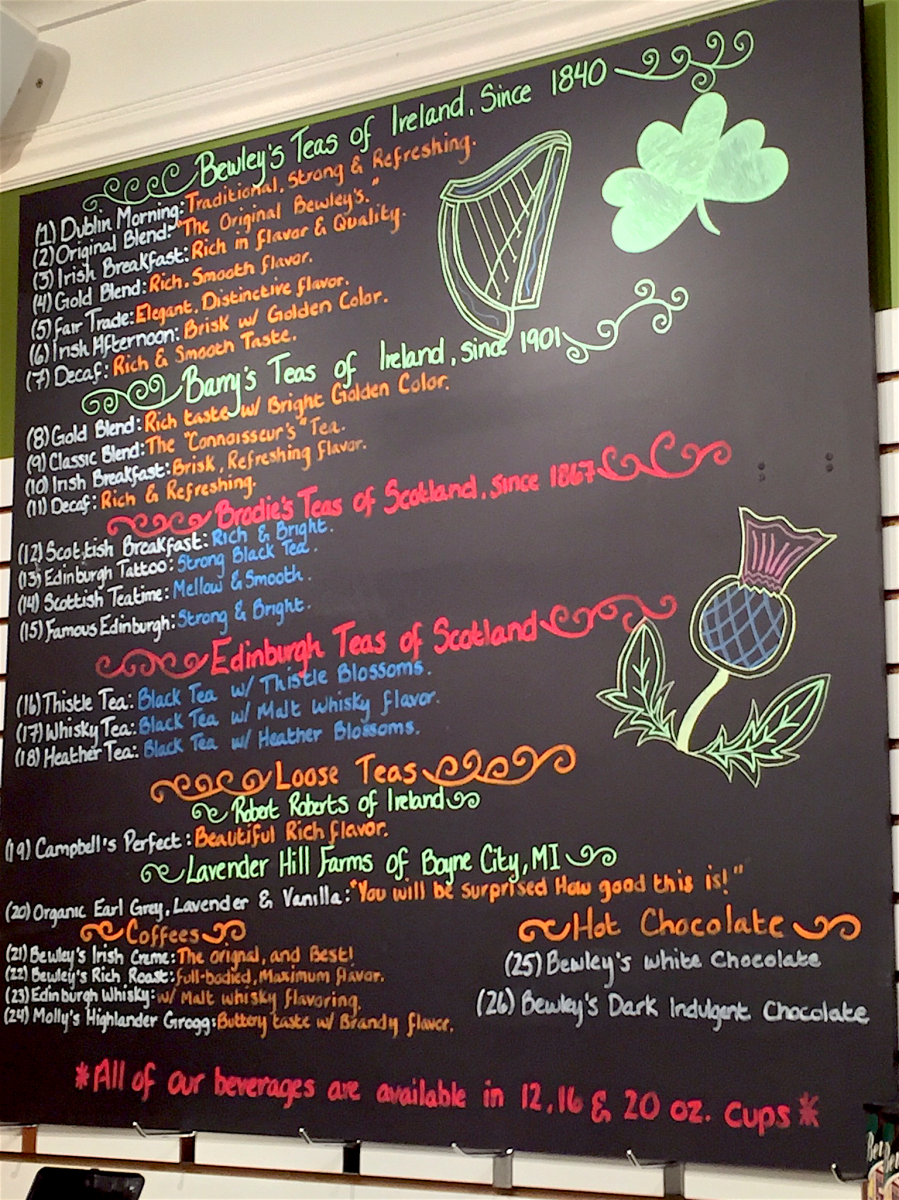 Bewley's Teas of Ireland, Since 1840
(1) Dublin Morning: Traditional, Strong & Refreshing.
(2) Original Blend: "The Original Bewley's."
(3) Irish Breakfast: Rich in flavor & Quality.
(4) Gold Blend: Rich, Smooth flavor.
(5) Fair Trade: Elegant, Distinctive flavor.
(6) Irish Afternoon: Brisk w/ Golden Color.
(7) Decaf: Rich & Smooth Taste.
Barry's Teas of Ireland, since 1901
(8) Gold Blend: Rich taste w/ Bright Golden Color.
(9) Classic Blend: The "Connoisseur's" Tea.
(10) Irish Breakfast: Brisk, Refreshing flavor.
(11) Decaf: Rich & Refreshing.
Brodie's Teas of Scotland, since 1867
(12) Scottish Breakfast: Rich & Bright.
(13) Edinburgh Tattoo: Strong Black Tea.
(14) Scottish Teatime: Mellow & Smooth.
(15) Famous Edinburgh: Strong & Bright.
Edinburgh Teas of Scotland
(16) Thistle Tea: Black Tea w/ Thistle Blossoms.
(17) Whisky Tea: Black Tea w/ Malt Whisky flavor.
(18) Heather Tea: Black Tea w/ Heather Blossoms.
Loose Teas
Robert Roberts of Ireland
(19) Campbell's Perfect: Beautiful Rich flavor.
Lavender Hill Farms of Boyne City, MI
(20) Organic Earl Grey, Lavender & Vanilla: "You will be surprised How good this is!"
Coffees
(21) Bewley's Irish Creme: The orignal, and Best!
(22) Bewley's Rich Roast: full-bodied, Maximum flavor.
(23) Edinburgh Whisky: w/ Malt whisky flavoring.
(24) Molly's Highlander Grogg: Buttery taste w/ Brandy flavor.
Hot Chocolate
(25) Bewley's White Chocolate
(26) Bewley's Dark Indulgent Chocolate
*All of our beverages are available in 12, 16 & 20 oz. cups*